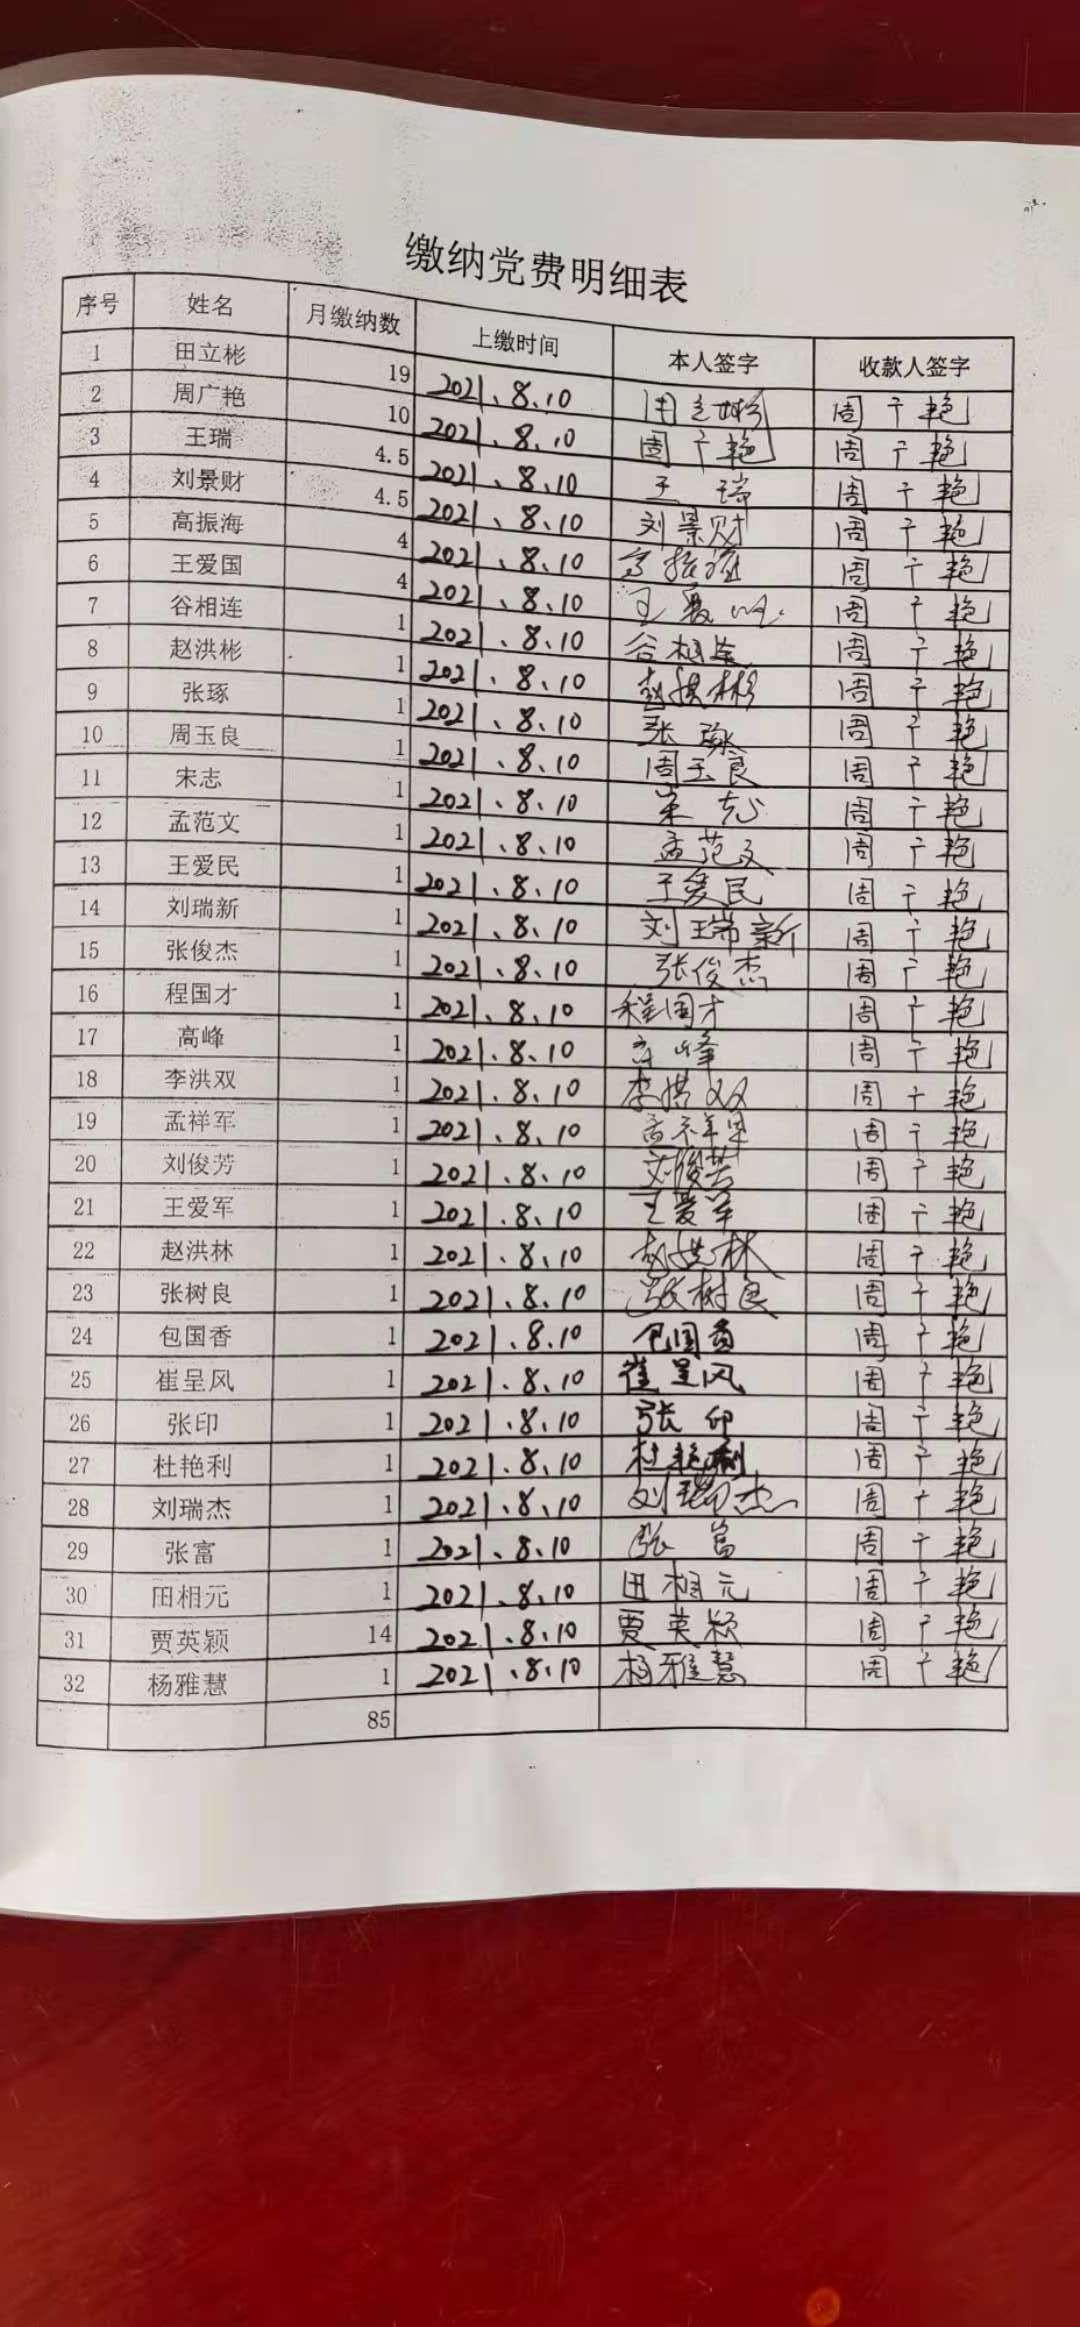 缴纳党费明细表
序号 姓名 月缴纳数 上缴时间 本人签字 收款人签字
1 田立彬 19 2021.8.10 田立彬 周广艳
2 周广艳 10 2021.8.10 周广艳 周广艳
3 王瑞 4.5 2021.8.10 王瑞 周广艳
4 刘景财 4.5 2021.8.10 刘景财 周广艳
5 高振海 4 2021.8.10 高振海 周广艳
6 王爱国 4 2021.8.10 王爱国 周广艳
7 谷相连 1 2021.8.10 谷相连 周广艳
8 赵洪彬 1 2021.8.10 赵洪彬 周广艳
9 张琢 1 2021.8.10 张琢 周广艳
10 周玉良 1 2021.8.10 周玉良 周广艳
11 宋志 1 2021.8.10 宋志 周广艳
12 孟范文 1 2021.8.10 孟范文 周广艳
13 王爱民 1 2021.8.10 王爱民 周广艳
14 刘瑞新 1 2021.8.10 刘瑞新 周广艳
15 张俊杰 1 2021.8.10 张俊杰 周广艳
16 程国才 1 2021.8.10 程国才 周广艳
17 高峰 1 2021.8.10 高峰 周广艳
18 李洪双 1 2021.8.10 李洪双 周广艳
19 孟祥军 1 2021.8.10 孟祥军 周广艳
20 刘俊芳 1 2021.8.10 刘俊芳 周广艳
21 王爱军 1 2021.8.10 王爱军 周广艳
22 赵洪林 1 2021.8.10 赵洪林 周广艳
23 张树良 1 2021.8.10 张树良 周广艳
24 包国香 1 2021.8.10 包国香 周广艳
25 崔呈风 1 2021.8.10 崔呈风 周广艳
26 张印 1 2021.8.10 张印 周广艳
27 杜艳利 1 2021.8.10 杜艳利 周广艳
28 刘瑞杰 1 2021.8.10 刘瑞杰 周广艳
29 张富 1 2021.8.10 张富 周广艳
30 田相元 1 2021.8.10 田相元 周广艳
31 贾英颖 14 2021.8.10 贾英颖 周广艳
32 杨雅慧 1 2021.8.10 杨雅慧 周广艳
85